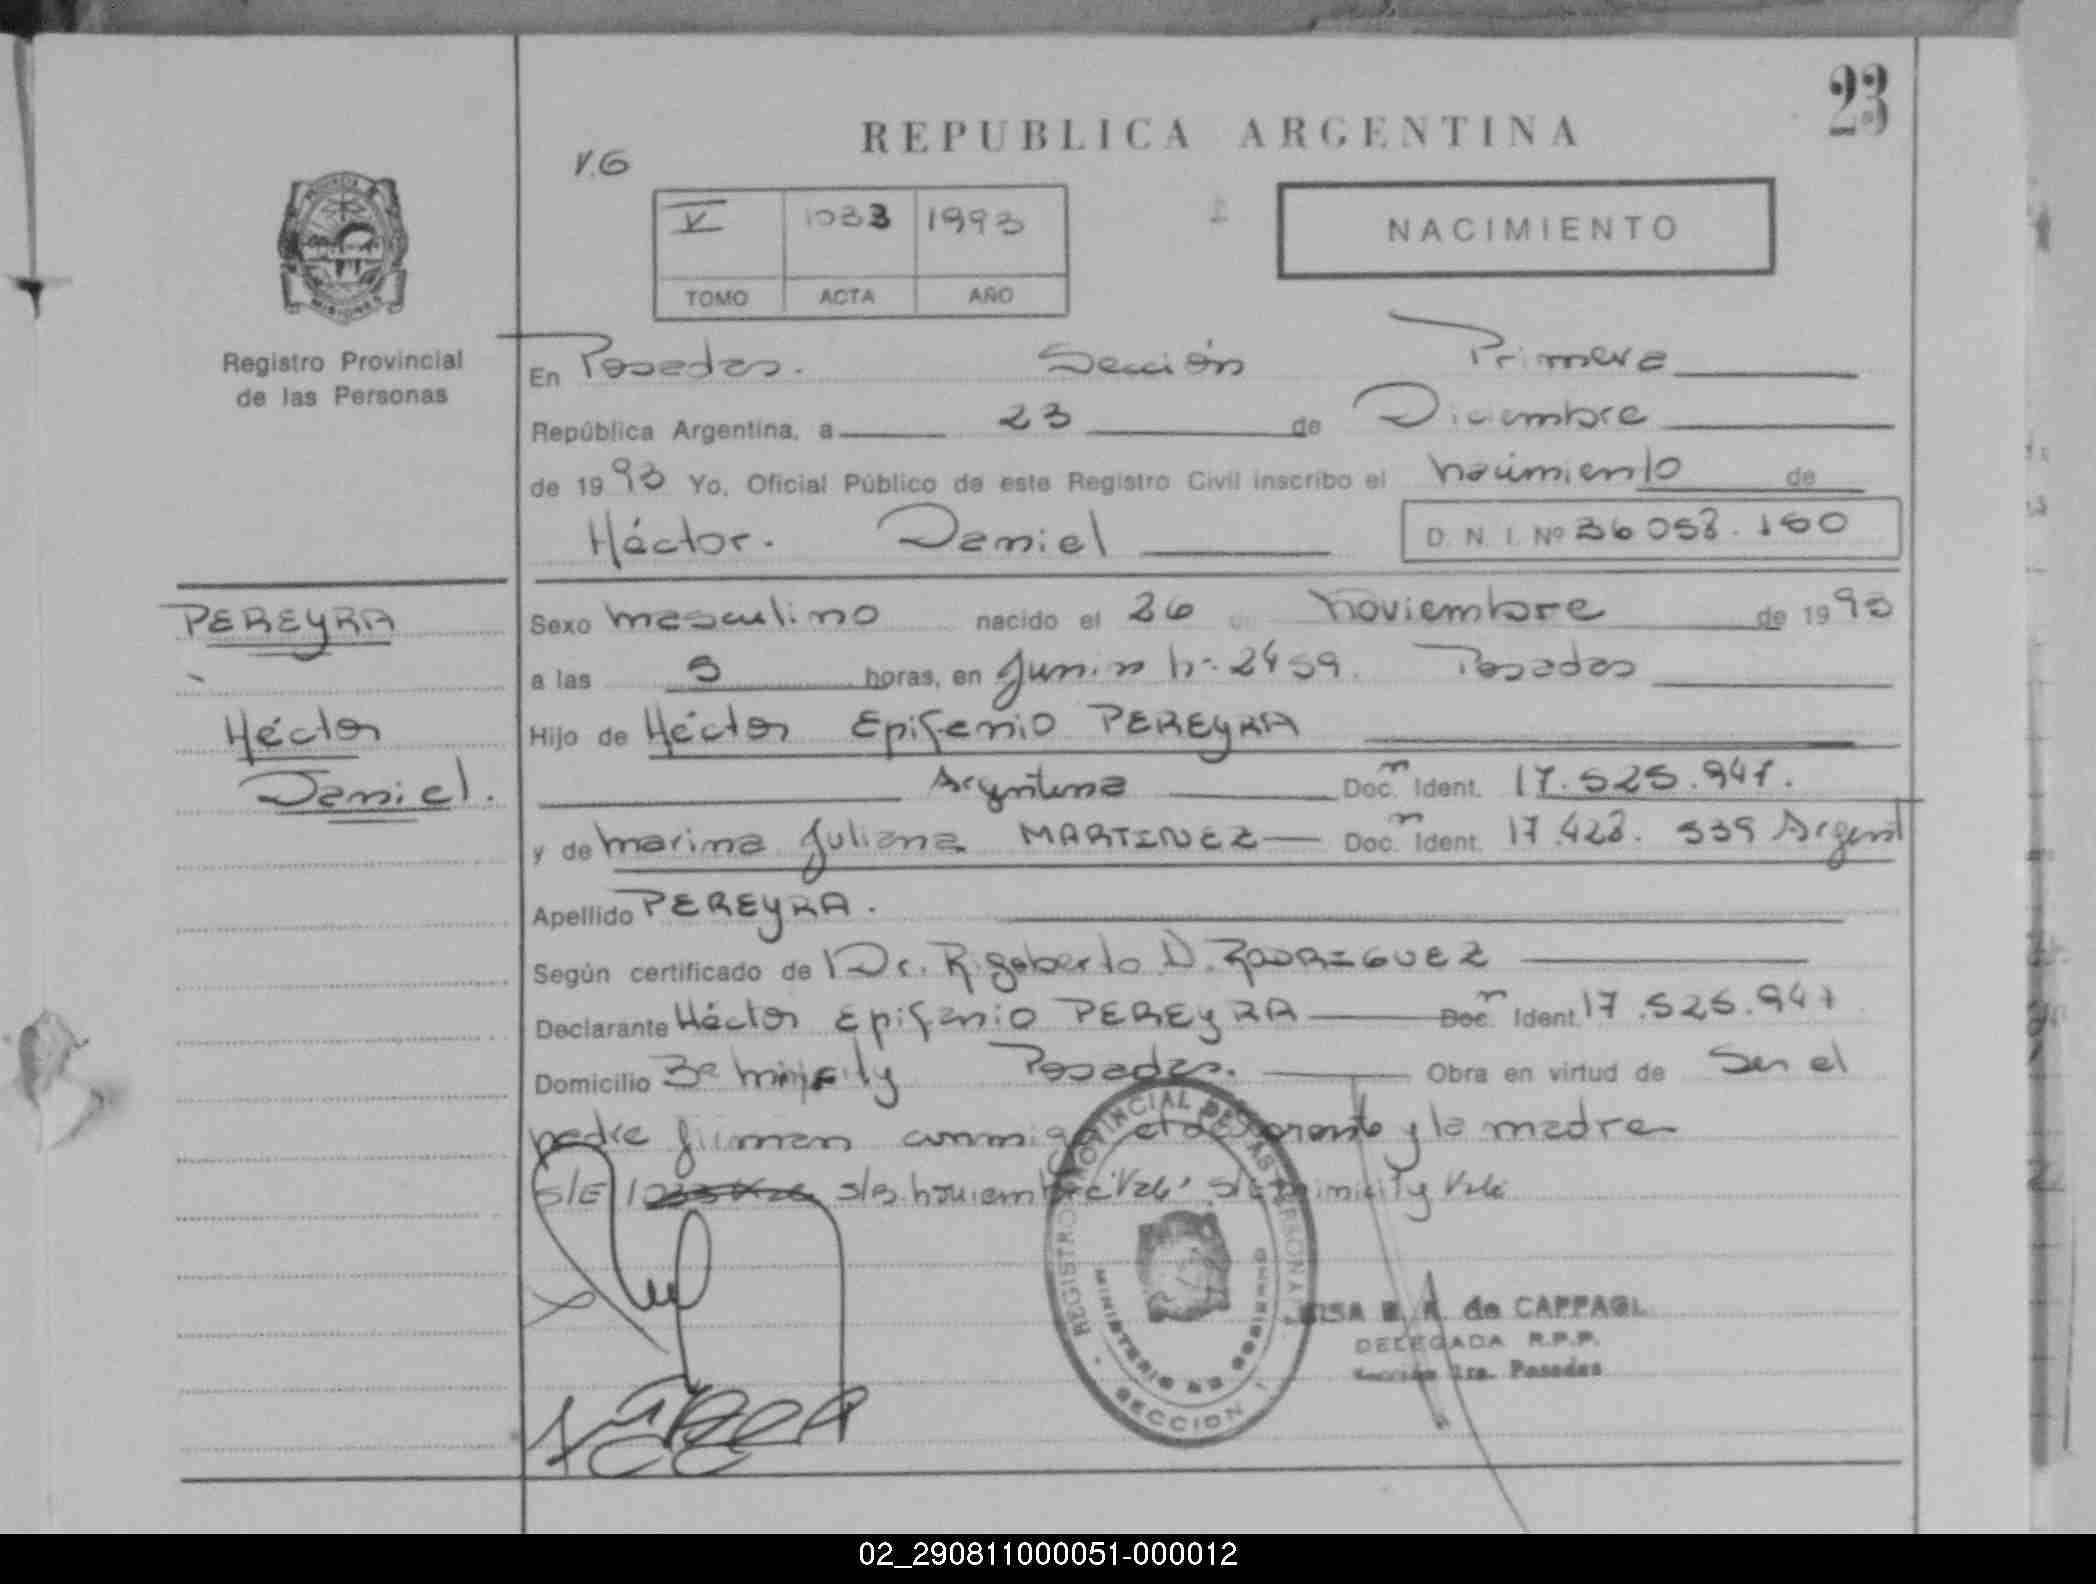 23
REPUBLICA ARGENTINA
V.G
V 1033 1993
TOMO ACTA AÑO
NACIMIENTO
PROVINCIA DE
MISIONES
Registro Provincial
de las Personas
En Posadas. Sección Primera
República Argentina, a 23 de Diciembre
de 1993 Yo, Oficial Público de este Registro Civil inscribo el nacimiento de
Héctor. Daniel D. N. I. Nº 36 058.160
PEREYRA
Héctor
Daniel.
Sexo masculino nacido el 26 de noviembre de 1993
a las 5 horas, en Junin nº 2459. Posadas
Hijo de Héctor Epifenio PEREYRA
Argentina Doc. Ident. 17.525.947.
y de marina Juliana MARTINEZ Doc. Ident. 17.428.539 Argent
Apellido PEREYRA.
Según certificado de Dr. Rigoberto D. RODRIGUEZ
Declarante Héctor Epifanio PEREYRA Doc. Ident. 17.525.947
Domicilio Bº Posadas. Obra en virtud de Ser el
padre firman conmigo y la madre
S/E S/B noviembre Vale
REGISTRO PROVINCIAL DE LAS PERSONAS
MINISTERIO DE GOBIERNO
SECCION 1
de CAPPAGL
DELEGADA R.P.P.
Sección 1ra. Posadas
02_290811000051-000012